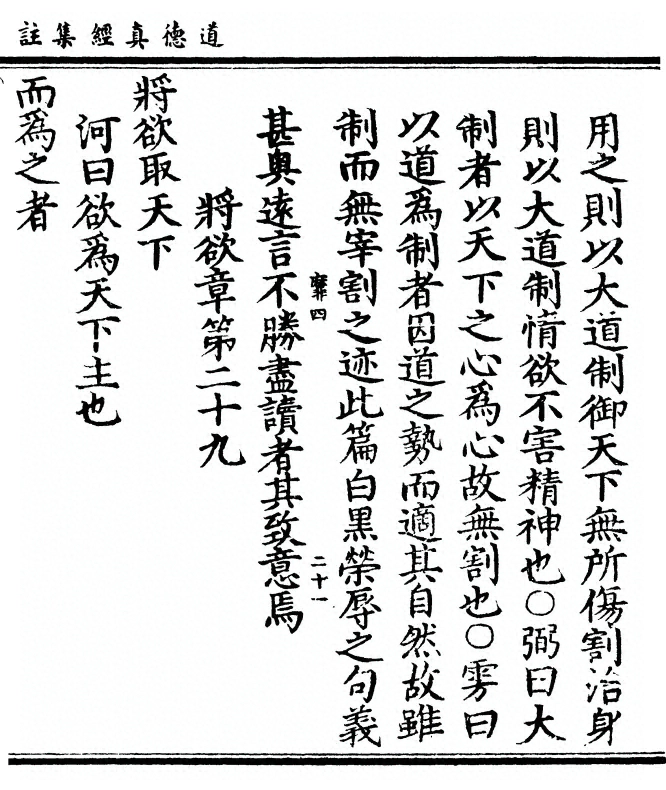 道德真經集註
用之則以大道制御天下無所傷割治身
則以大道制情欲不害精神也○弼曰大
制者以天下之心為心故無割也○雱曰
以道為制者因道之勢而適其自然故雖
制而無宰割之迹此篇白黑榮辱之句義
靡四
二十一
甚奧遠言不勝盡讀者其致意焉
將欲章第二十九
將欲取天下
河曰欲為天下主也
而為之者